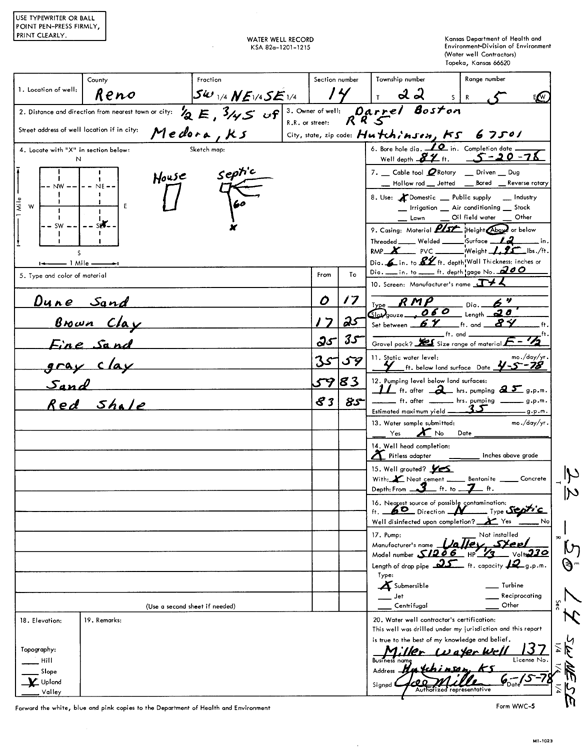 USE TYPEWRITER OR BALL
POINT PEN-PRESS FIRMLY,
PRINT CLEARLY.
WATER WELL RECORD
KSA 82a-1201-1215
Kansas Department of Health and
Environment-Division of Environment
(Water well Contractors)
Topeka, Kansas 66620
1. Location of well: County Reno Fraction SW 1/4 NE 1/4 SE 1/4 Section number 14 Township number T 22 S Range number R 5 E/W
2. Distance and direction from nearest town or city: 1/2 E, 3/4 S of
Street address of well location if in city: Medora, Ks
3. Owner of well: Darrel Boston
R.R. or street: RR 5
City, state, zip code: Hutchinson, KS 67501
4. Locate with "X" in section below: Sketch map:
N
NW NE
W E
SW SE
X
S
1 Mile
1 Mile
House Septic
60
x
6. Bore hole dia. 10 in. Completion date
Well depth 84 ft. 5-20-78
7. Cable tool Rotary Driven Dug
Hollow rod Jetted Bored Reverse rotary
8. Use: X Domestic Public supply Industry
Irrigation Air conditioning Stock
Lawn Oil field water Other
9. Casing: Material Plst Height: Above or below
Threaded Welded Surface 12 in.
RMP X PVC Weight 1.95 lbs./ft.
Dia. 6 in. to 84 ft. depth Wall Thickness: inches or
Dia. in. to ft. depth gage No. 200
10. Screen: Manufacturer's name J+L
Type RMP Dia. 6"
Slot/gauze .060 Length 20'
Set between 64 ft. and 84 ft.
ft. and ft.
Gravel pack? Yes Size range of material F-1/2
11. Static water level: mo./day/yr.
4 ft. below land surface Date 4-5-78
12. Pumping level below land surfaces:
11 ft. after 2 hrs. pumping 25 g.p.m.
ft. after hrs. pumping g.p.m.
Estimated maximum yield 35 g.p.m.
13. Water sample submitted: mo./day/yr.
Yes X No Date
14. Well head completion:
X Pitless adapter Inches above grade
15. Well grouted? yes
With: X Neat cement Bentonite Concrete
Depth: From 3 ft. to 7 ft.
16. Nearest source of possible contamination:
ft. 60 Direction N Type Septic
Well disinfected upon completion? X Yes No
17. Pump: Not installed
Manufacturer's name Valley Steel
Model number S1206 HP 1/3 Volts 220
Length of drop pipe 25 ft. capacity 12 g.p.m.
Type:
X Submersible Turbine
Jet Reciprocating
Centrifugal Other
5. Type and color of material From To
Dune Sand 0 17
Brown Clay 17 25
Fine Sand 25 35
gray clay 35 59
Sand 59 83
Red Shale 83 85
(Use a second sheet if needed)
18. Elevation:
Topography:
Hill
Slope
X Upland
Valley
19. Remarks:
20. Water well contractor's certification:
This well was drilled under my jurisdiction and this report
is true to the best of my knowledge and belief.
Miller Water Well 137
Business name License No.
Address Hutchinson, KS
Signed Joe Miller Date 6-15-78
Authorized representative
Forward the white, blue and pink copies to the Department of Health and Environment
Form WWC-5
T 22 R 5 W Sec 14 SW NE SE
1/4 1/4 1/4